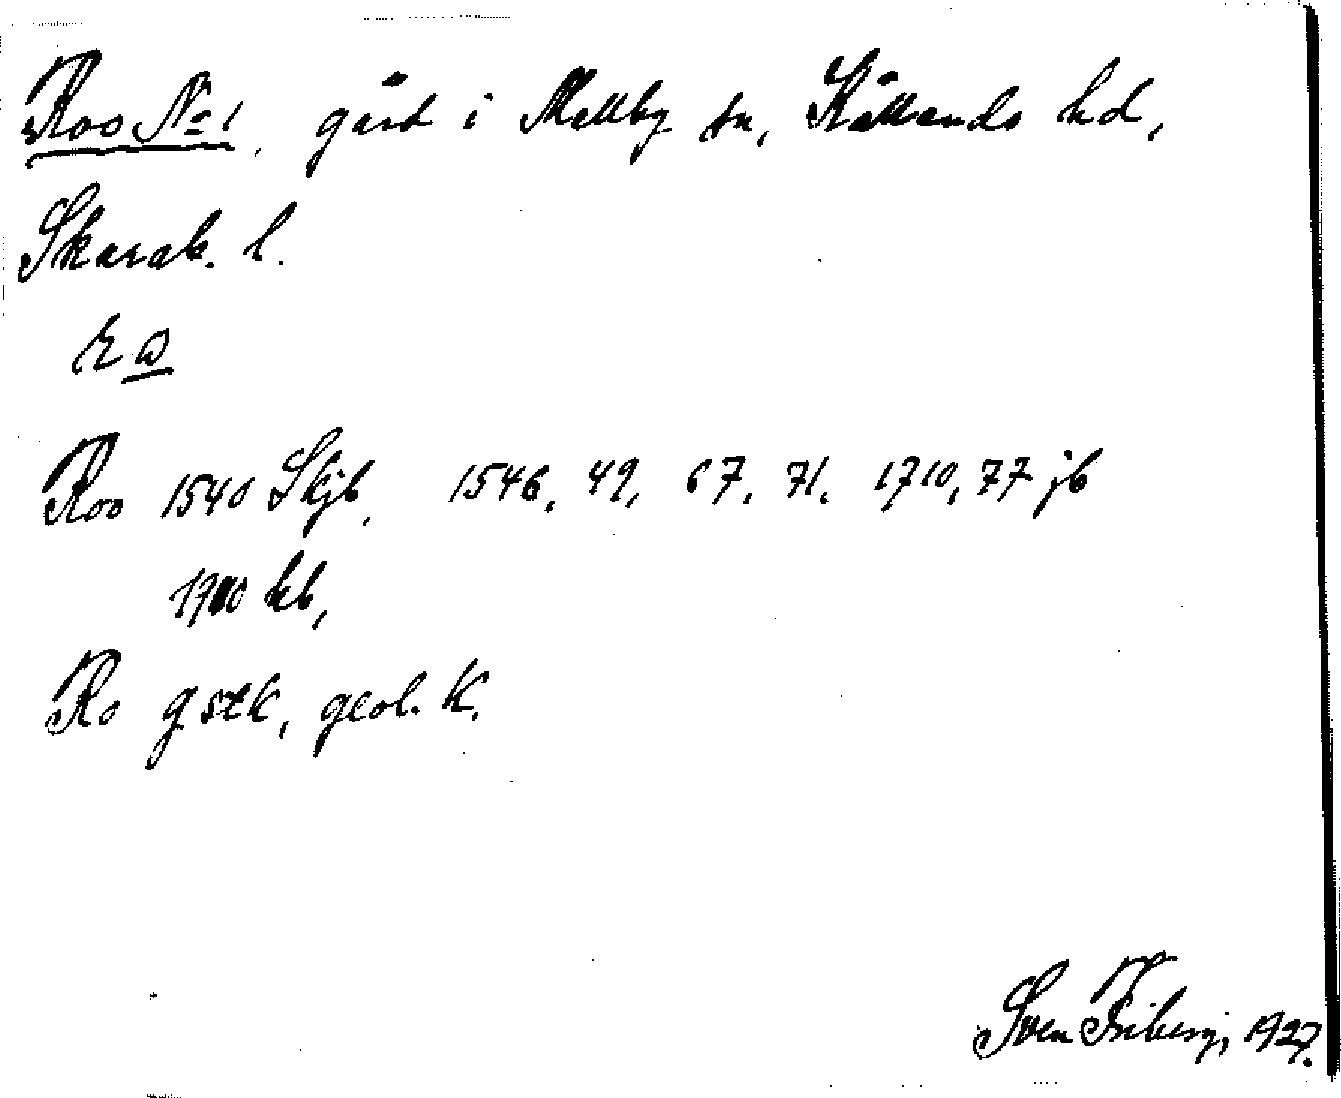 Roo No 1, gård i Mellby sn, Kållands hd,
Skarab. l.
Roo 1540 Skjb, 1546, 49, 67, 71, 1710, 77 jb
1900 kb,
Ro gstk, geol. K.
Sven Friberg, 1927.